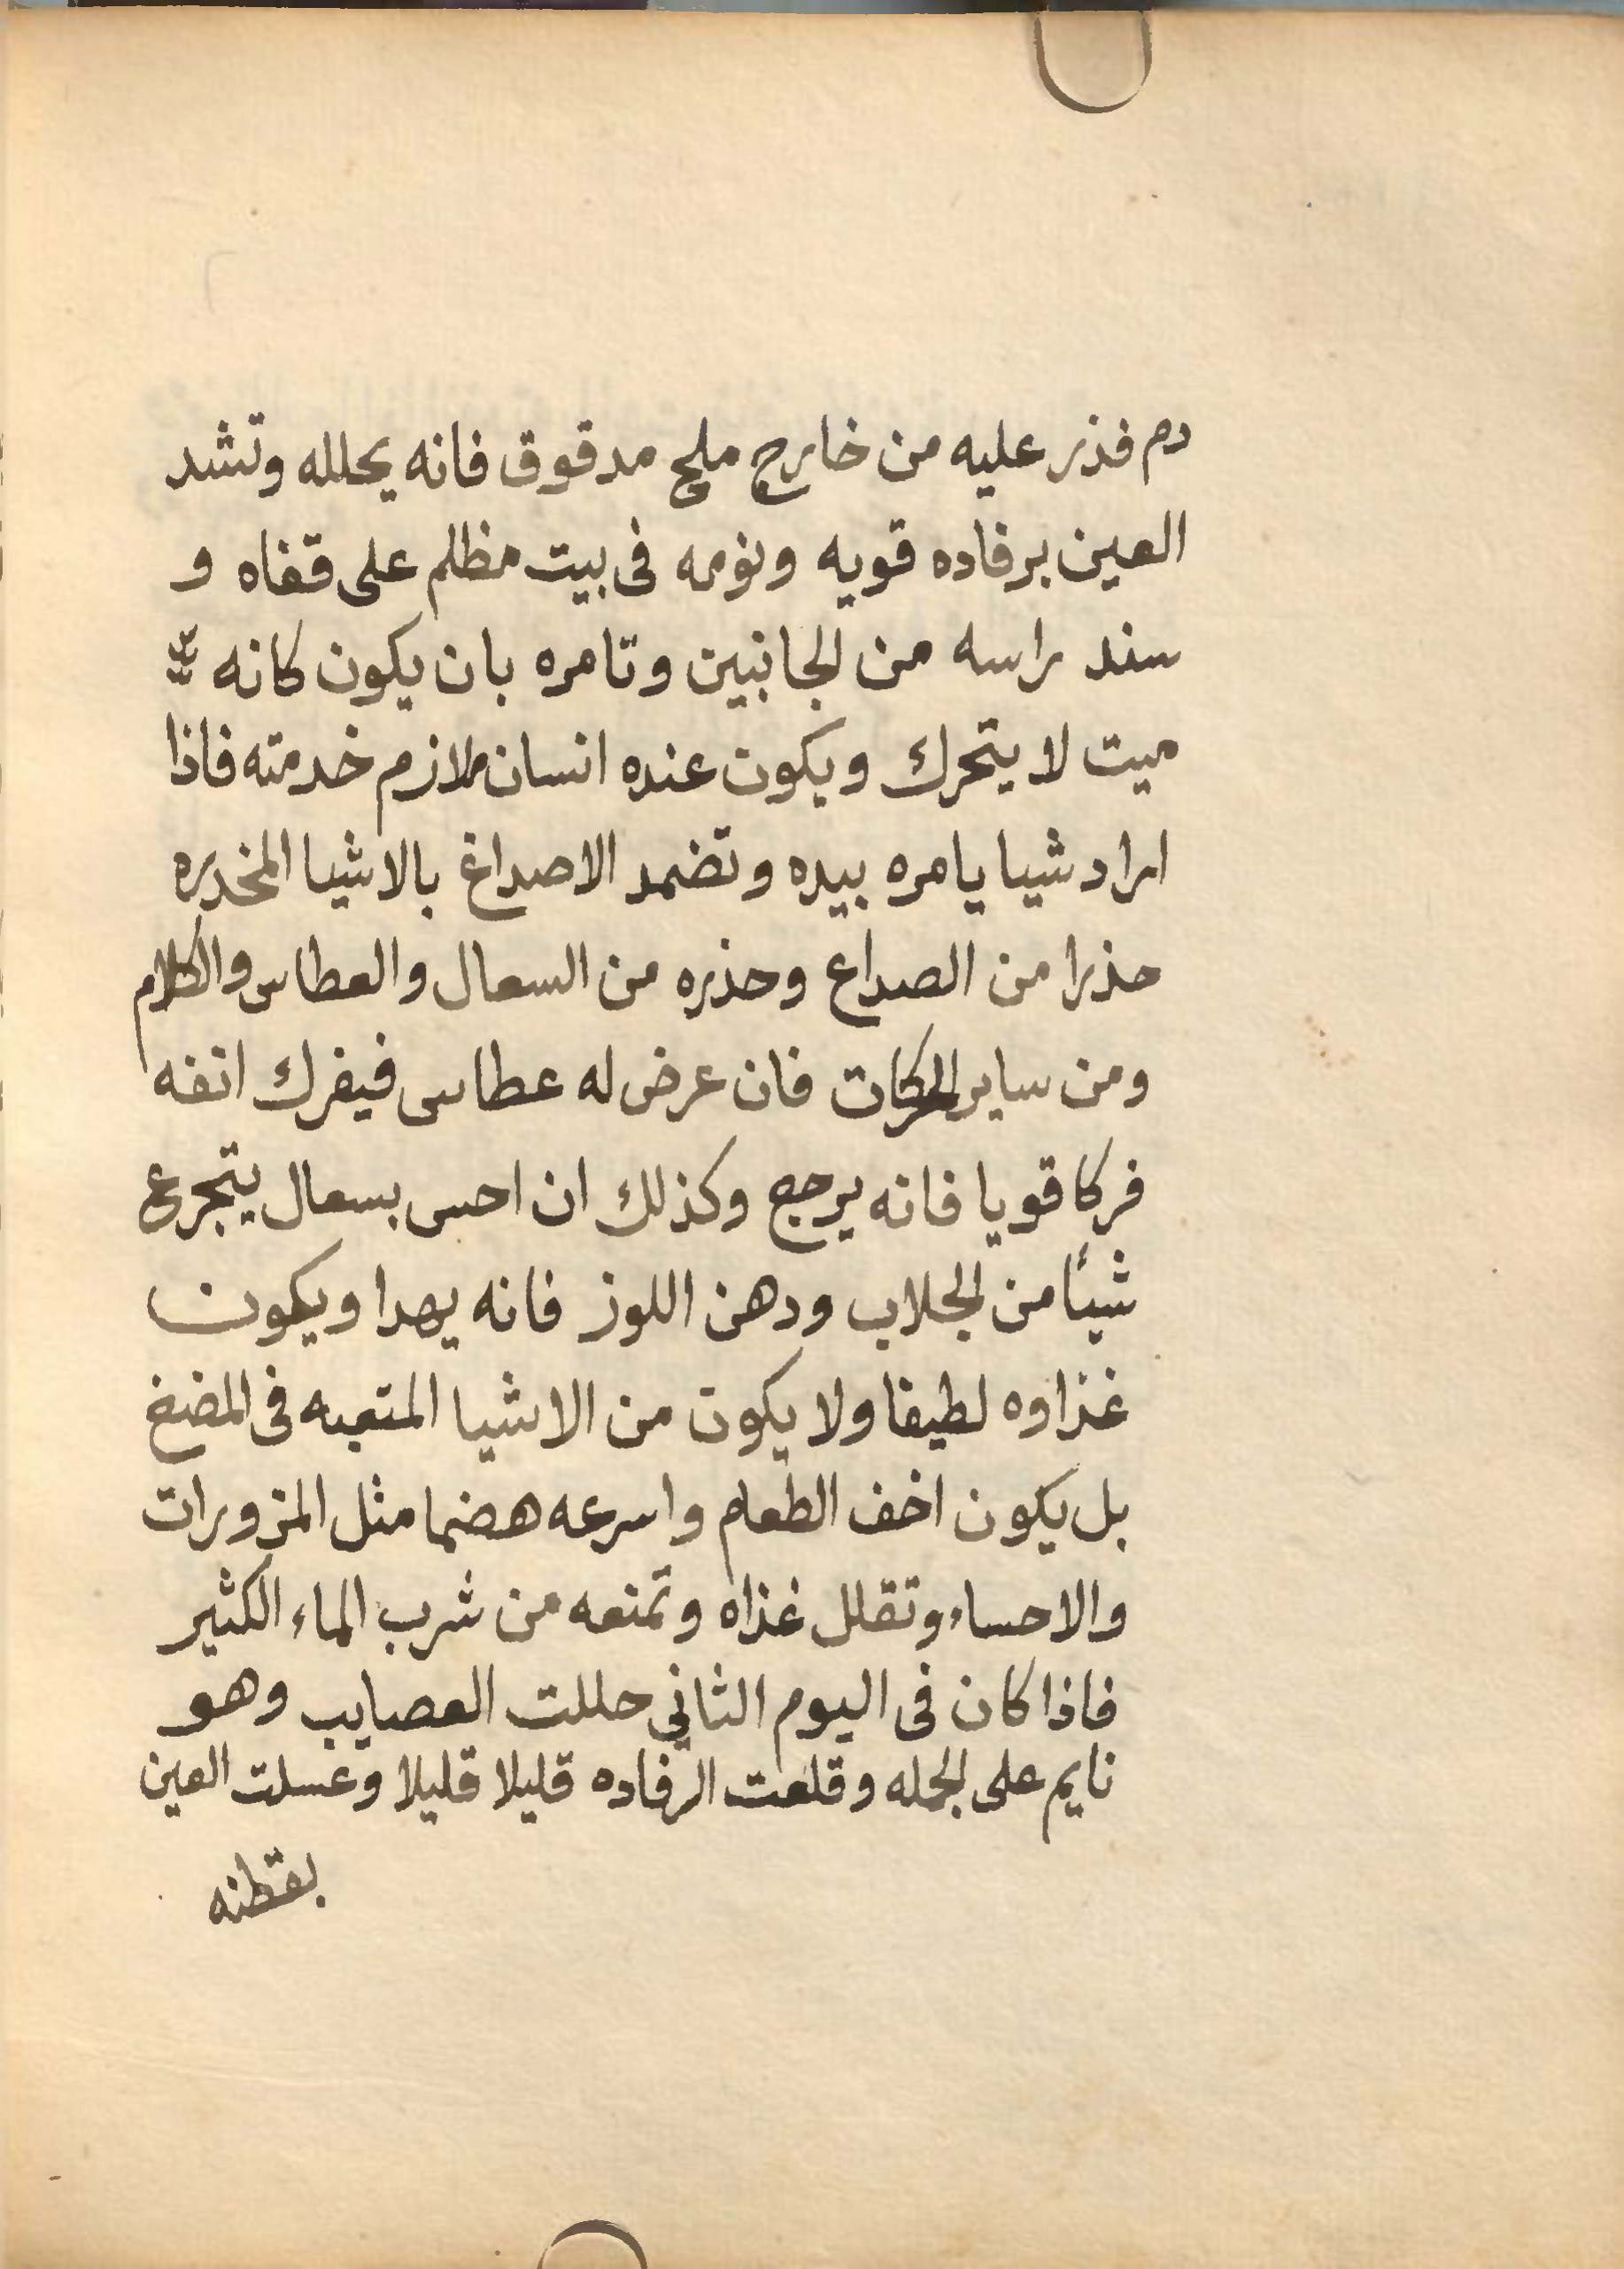 دم فذر عليه من خارج ملح مدقوق فانه يحلله وتشد
العين برفاده قويه ونومه فى بيت مظلم على قفاه و
سند راسه من الجانبين وتامره بان يكون كانه
ميت لا يتحرك ويكون عنده انسان ملازم خدمته فاذا
اراد شيا يامره بيده وتضمد الاصداغ بالاشيا المخدره
حذرا من الصداع وحذره من السعال والعطاس والكلام
ومن ساير الحركات فان عرض له عطاس فيفرك انفه
فركا قويا فانه يرجع وكذلك ان احس بسعال يتجرع
شيئا من الجلاب ودهن اللوز فانه يهدا ويكون
غذاوه لطيفا ولا يكون من الاشيا المتعبه فى المضغ
بل يكون اخف الطعام واسرعه هضما مثل المزورات
والاحساء وتقلل غذاه وتمنعه من شرب الماء الكثير
فاذا كان فى اليوم الثانى حللت العصايب وهو
نايم على الجمله وقلعت الرفاده قليلا قليلا وغسلت العين
بقطنه